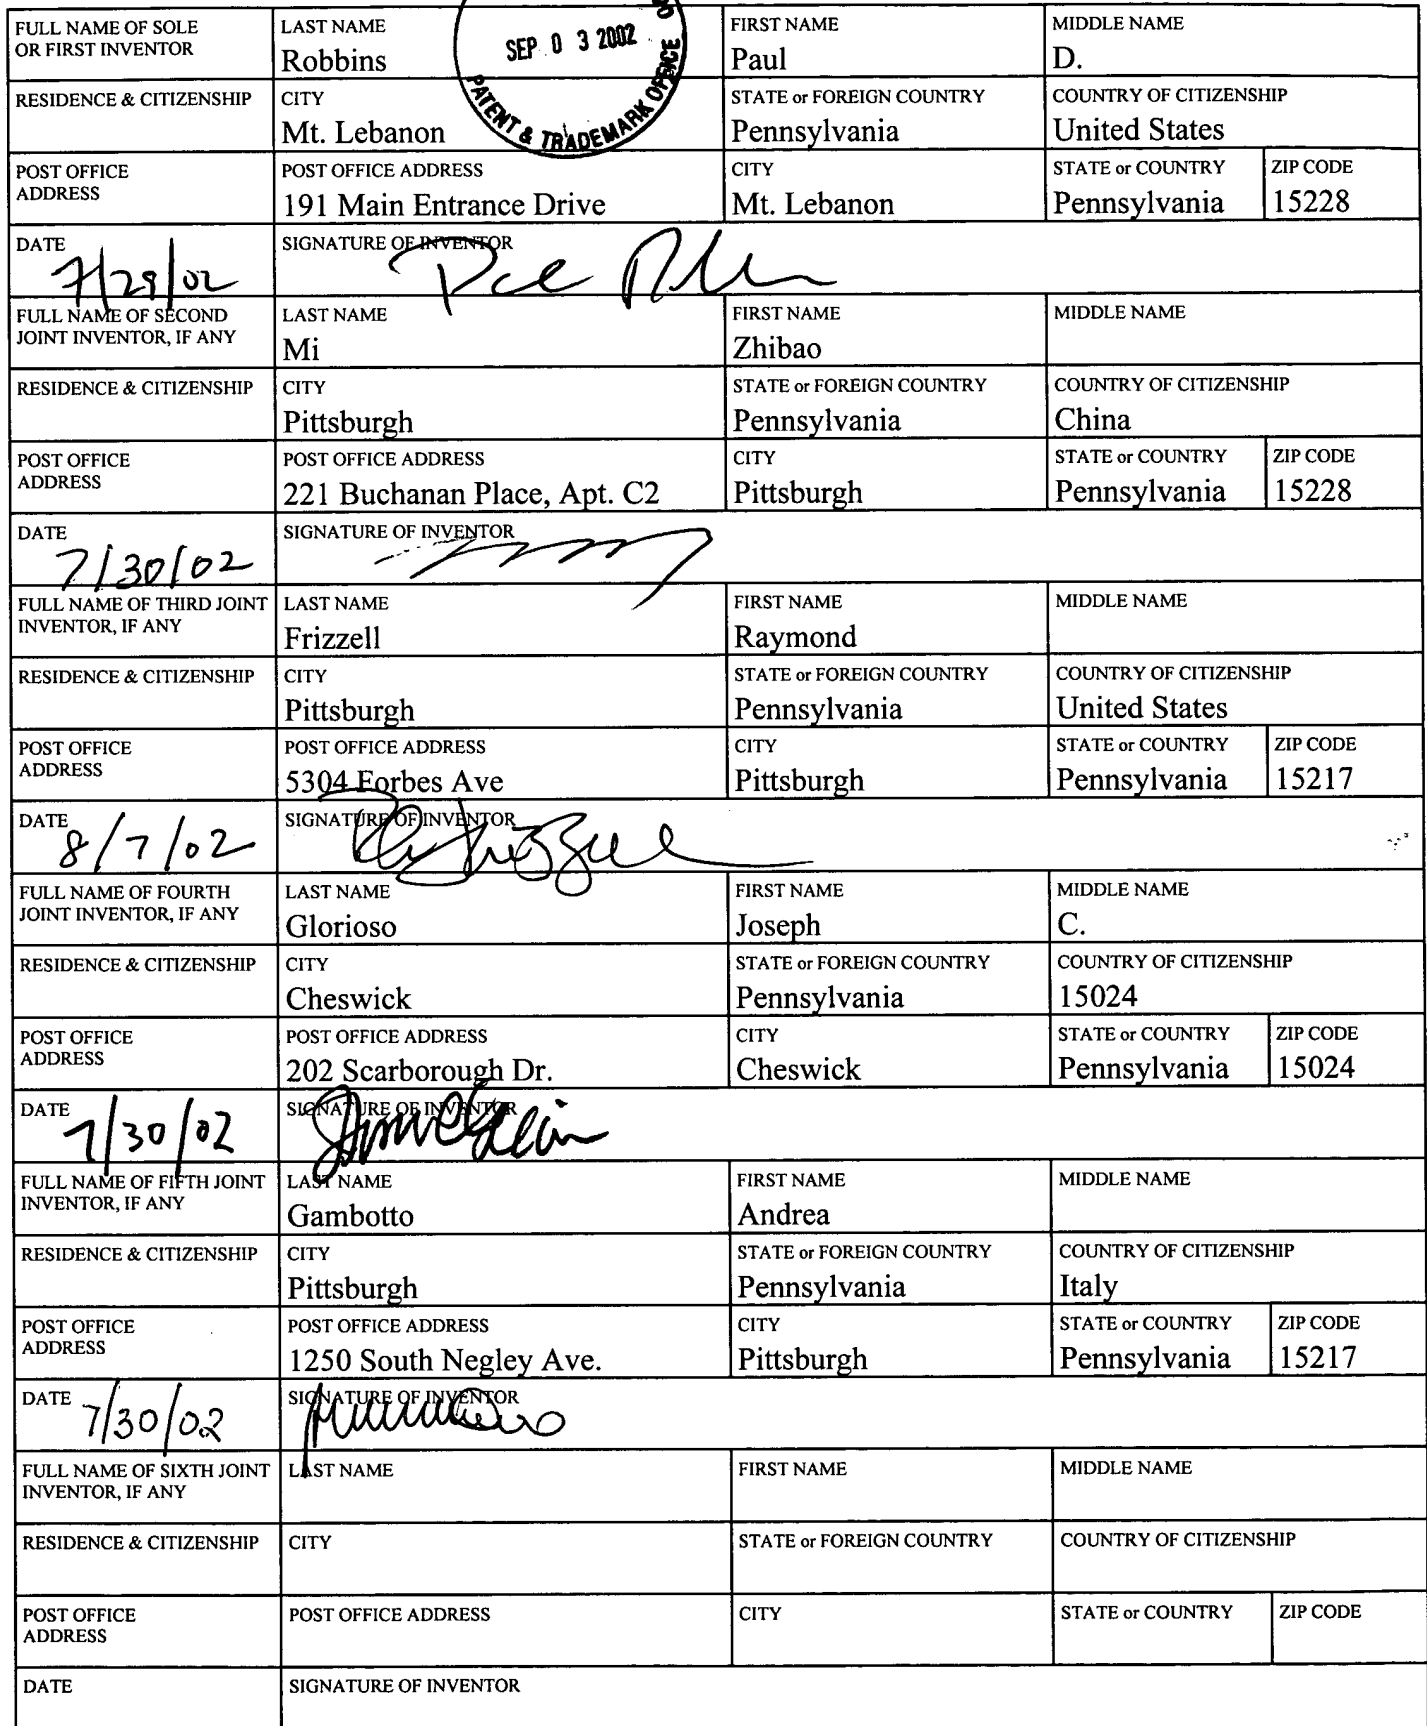 FULL NAME OF SOLE
OR FIRST INVENTOR
LAST NAME
Robbins
FIRST NAME
Paul
MIDDLE NAME
D.
SEP 0 3 2002
PATENT & TRADEMARK OFFICE
RESIDENCE & CITIZENSHIP
CITY
Mt. Lebanon
STATE or FOREIGN COUNTRY
Pennsylvania
COUNTRY OF CITIZENSHIP
United States
POST OFFICE
ADDRESS
POST OFFICE ADDRESS
191 Main Entrance Drive
CITY
Mt. Lebanon
STATE or COUNTRY
Pennsylvania
ZIP CODE
15228
DATE
7/29/02
SIGNATURE OF INVENTOR
FULL NAME OF SECOND
JOINT INVENTOR, IF ANY
LAST NAME
Mi
FIRST NAME
Zhibao
MIDDLE NAME
RESIDENCE & CITIZENSHIP
CITY
Pittsburgh
STATE or FOREIGN COUNTRY
Pennsylvania
COUNTRY OF CITIZENSHIP
China
POST OFFICE
ADDRESS
POST OFFICE ADDRESS
221 Buchanan Place, Apt. C2
CITY
Pittsburgh
STATE or COUNTRY
Pennsylvania
ZIP CODE
15228
DATE
7/30/02
SIGNATURE OF INVENTOR
FULL NAME OF THIRD JOINT
INVENTOR, IF ANY
LAST NAME
Frizzell
FIRST NAME
Raymond
MIDDLE NAME
RESIDENCE & CITIZENSHIP
CITY
Pittsburgh
STATE or FOREIGN COUNTRY
Pennsylvania
COUNTRY OF CITIZENSHIP
United States
POST OFFICE
ADDRESS
POST OFFICE ADDRESS
5304 Forbes Ave
CITY
Pittsburgh
STATE or COUNTRY
Pennsylvania
ZIP CODE
15217
DATE
8/7/02
SIGNATURE OF INVENTOR
FULL NAME OF FOURTH
JOINT INVENTOR, IF ANY
LAST NAME
Glorioso
FIRST NAME
Joseph
MIDDLE NAME
C.
RESIDENCE & CITIZENSHIP
CITY
Cheswick
STATE or FOREIGN COUNTRY
Pennsylvania
COUNTRY OF CITIZENSHIP
15024
POST OFFICE
ADDRESS
POST OFFICE ADDRESS
202 Scarborough Dr.
CITY
Cheswick
STATE or COUNTRY
Pennsylvania
ZIP CODE
15024
DATE
7/30/02
SIGNATURE OF INVENTOR
FULL NAME OF FIFTH JOINT
INVENTOR, IF ANY
LAST NAME
Gambotto
FIRST NAME
Andrea
MIDDLE NAME
RESIDENCE & CITIZENSHIP
CITY
Pittsburgh
STATE or FOREIGN COUNTRY
Pennsylvania
COUNTRY OF CITIZENSHIP
Italy
POST OFFICE
ADDRESS
POST OFFICE ADDRESS
1250 South Negley Ave.
CITY
Pittsburgh
STATE or COUNTRY
Pennsylvania
ZIP CODE
15217
DATE
7/30/02
SIGNATURE OF INVENTOR
FULL NAME OF SIXTH JOINT
INVENTOR, IF ANY
LAST NAME
FIRST NAME
MIDDLE NAME
RESIDENCE & CITIZENSHIP
CITY
STATE or FOREIGN COUNTRY
COUNTRY OF CITIZENSHIP
POST OFFICE
ADDRESS
POST OFFICE ADDRESS
CITY
STATE or COUNTRY
ZIP CODE
DATE
SIGNATURE OF INVENTOR